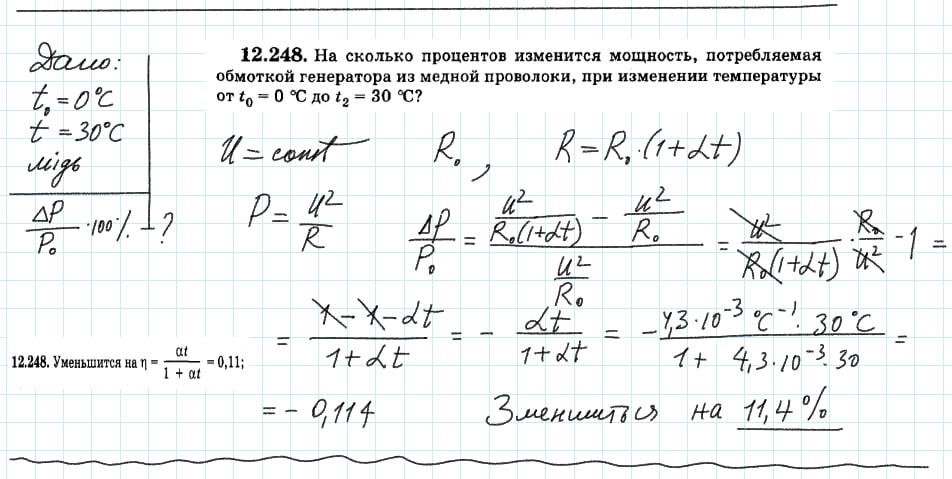 Дано:
t₀ = 0°C
t = 30°C
мідь
ΔP/P₀ · 100% - ?
12.248. На сколько процентов изменится мощность, потребляемая
обмоткой генератора из медной проволоки, при изменении температуры
от t₀ = 0 °С до t₂ = 30 °С?
U = const R₀, R = R₀·(1+αt)
P = U²/R ΔP/P₀ = (U²/(R₀(1+αt)) − U²/R₀)/(U²/R₀) = U²/(R₀(1+αt)) · R₀/U² − 1 =
= (1 − 1 − αt)/(1+αt) = − αt/(1+αt) = −(4,3·10⁻³ °C⁻¹ · 30°C)/(1 + 4,3·10⁻³·30) =
12.248. Уменьшится на η = αt/(1 + αt) = 0,11;
= − 0,114 Зменшиться на 11,4%